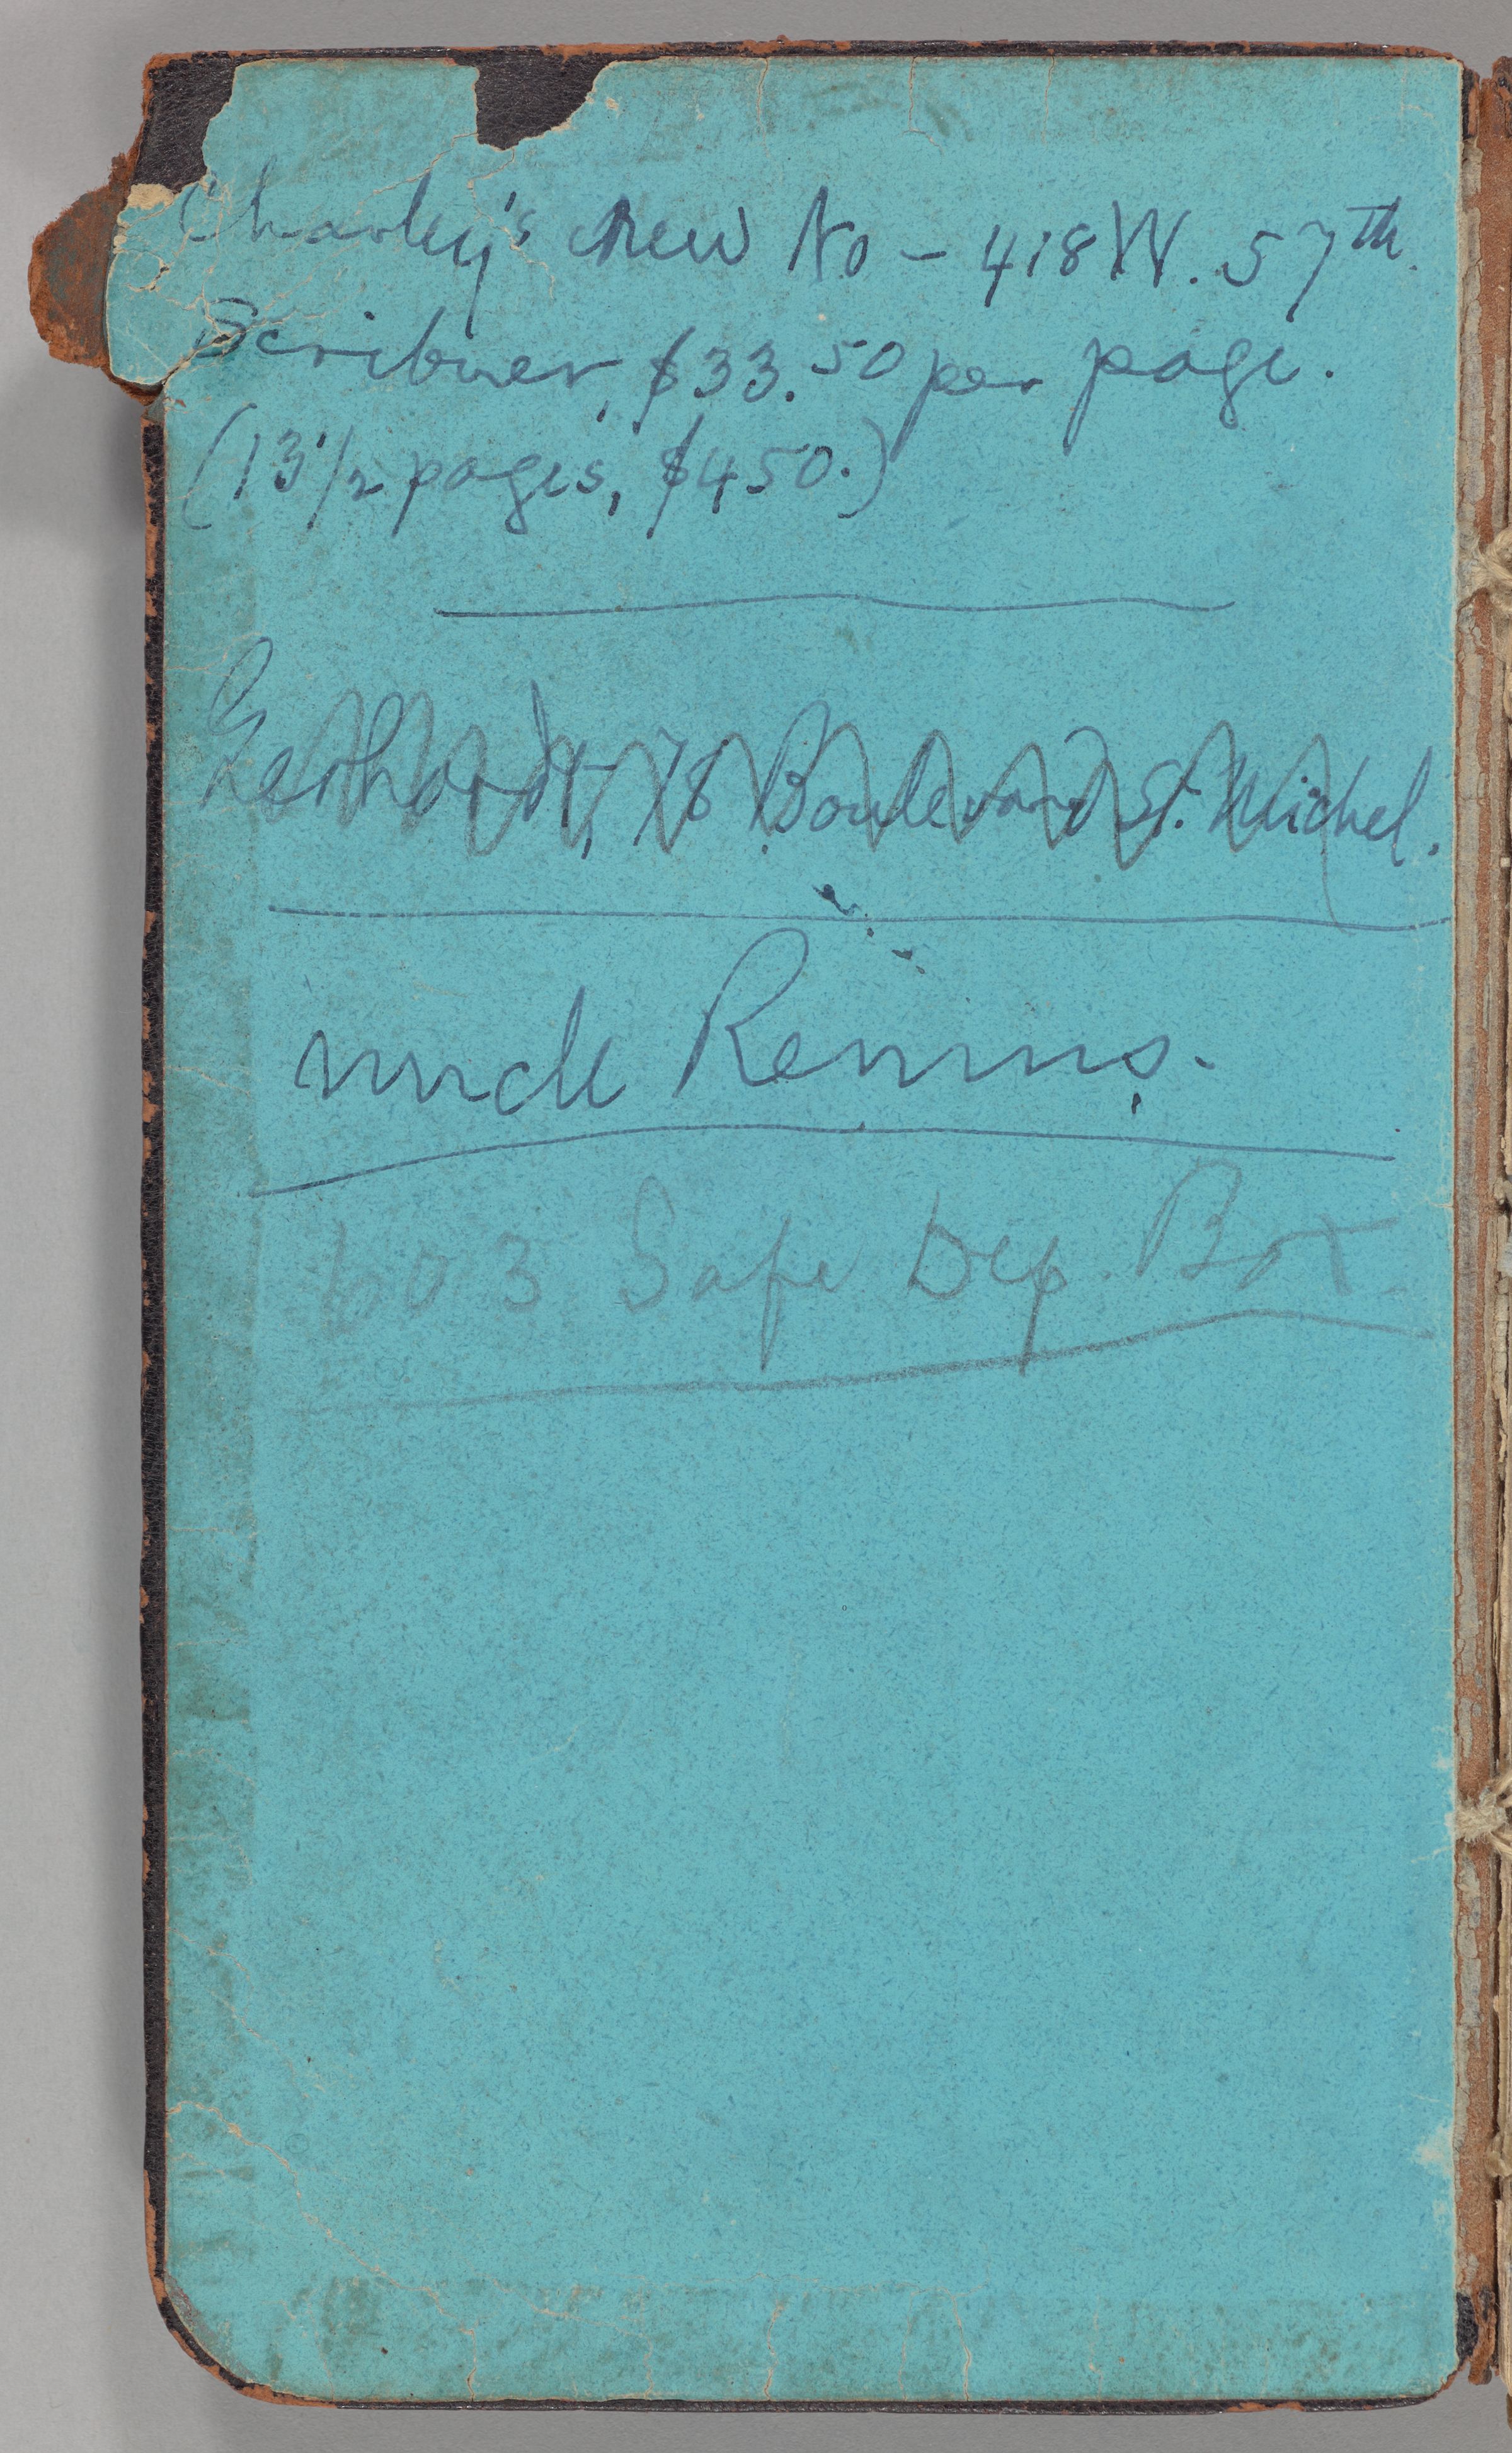 Charley's new No – 418 W. 57th.
Scribner, $33.50 per page.
(13½ pages, $450.)
Gerhardt, 78 Boulevard St. Michel.
uncle Remus.
603 Safe Dep. Box.